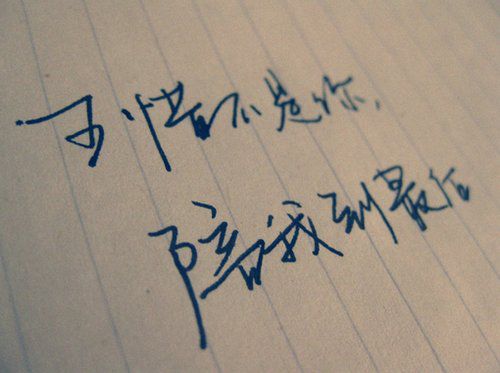 可惜不是你，
陪我到最后